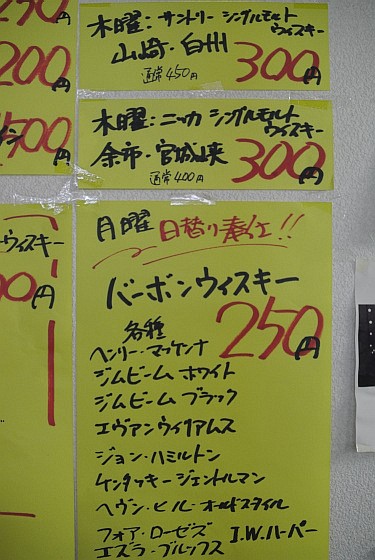 250円
200円
500円
ウィスキー
00円
木曜:サントリー シングルモルト
ウィスキー
山崎・白州 300円
通常450円
木曜:ニッカ シングルモルト
ウィスキー
余市・宮城峡 300円
通常400円
月曜 日替り奉仕!!
バーボンウィスキー
各種 250円
ヘンリー・マッケンナ
ジムビーム ホワイト
ジムビーム ブラック
エヴァンウィリアムス
ジョン・ハミルトン
ケンタッキージェントルマン
ヘヴン・ヒル・オールドスタイル
フォア・ローゼズ I.W.ハーパー
エズラ・ブルックス